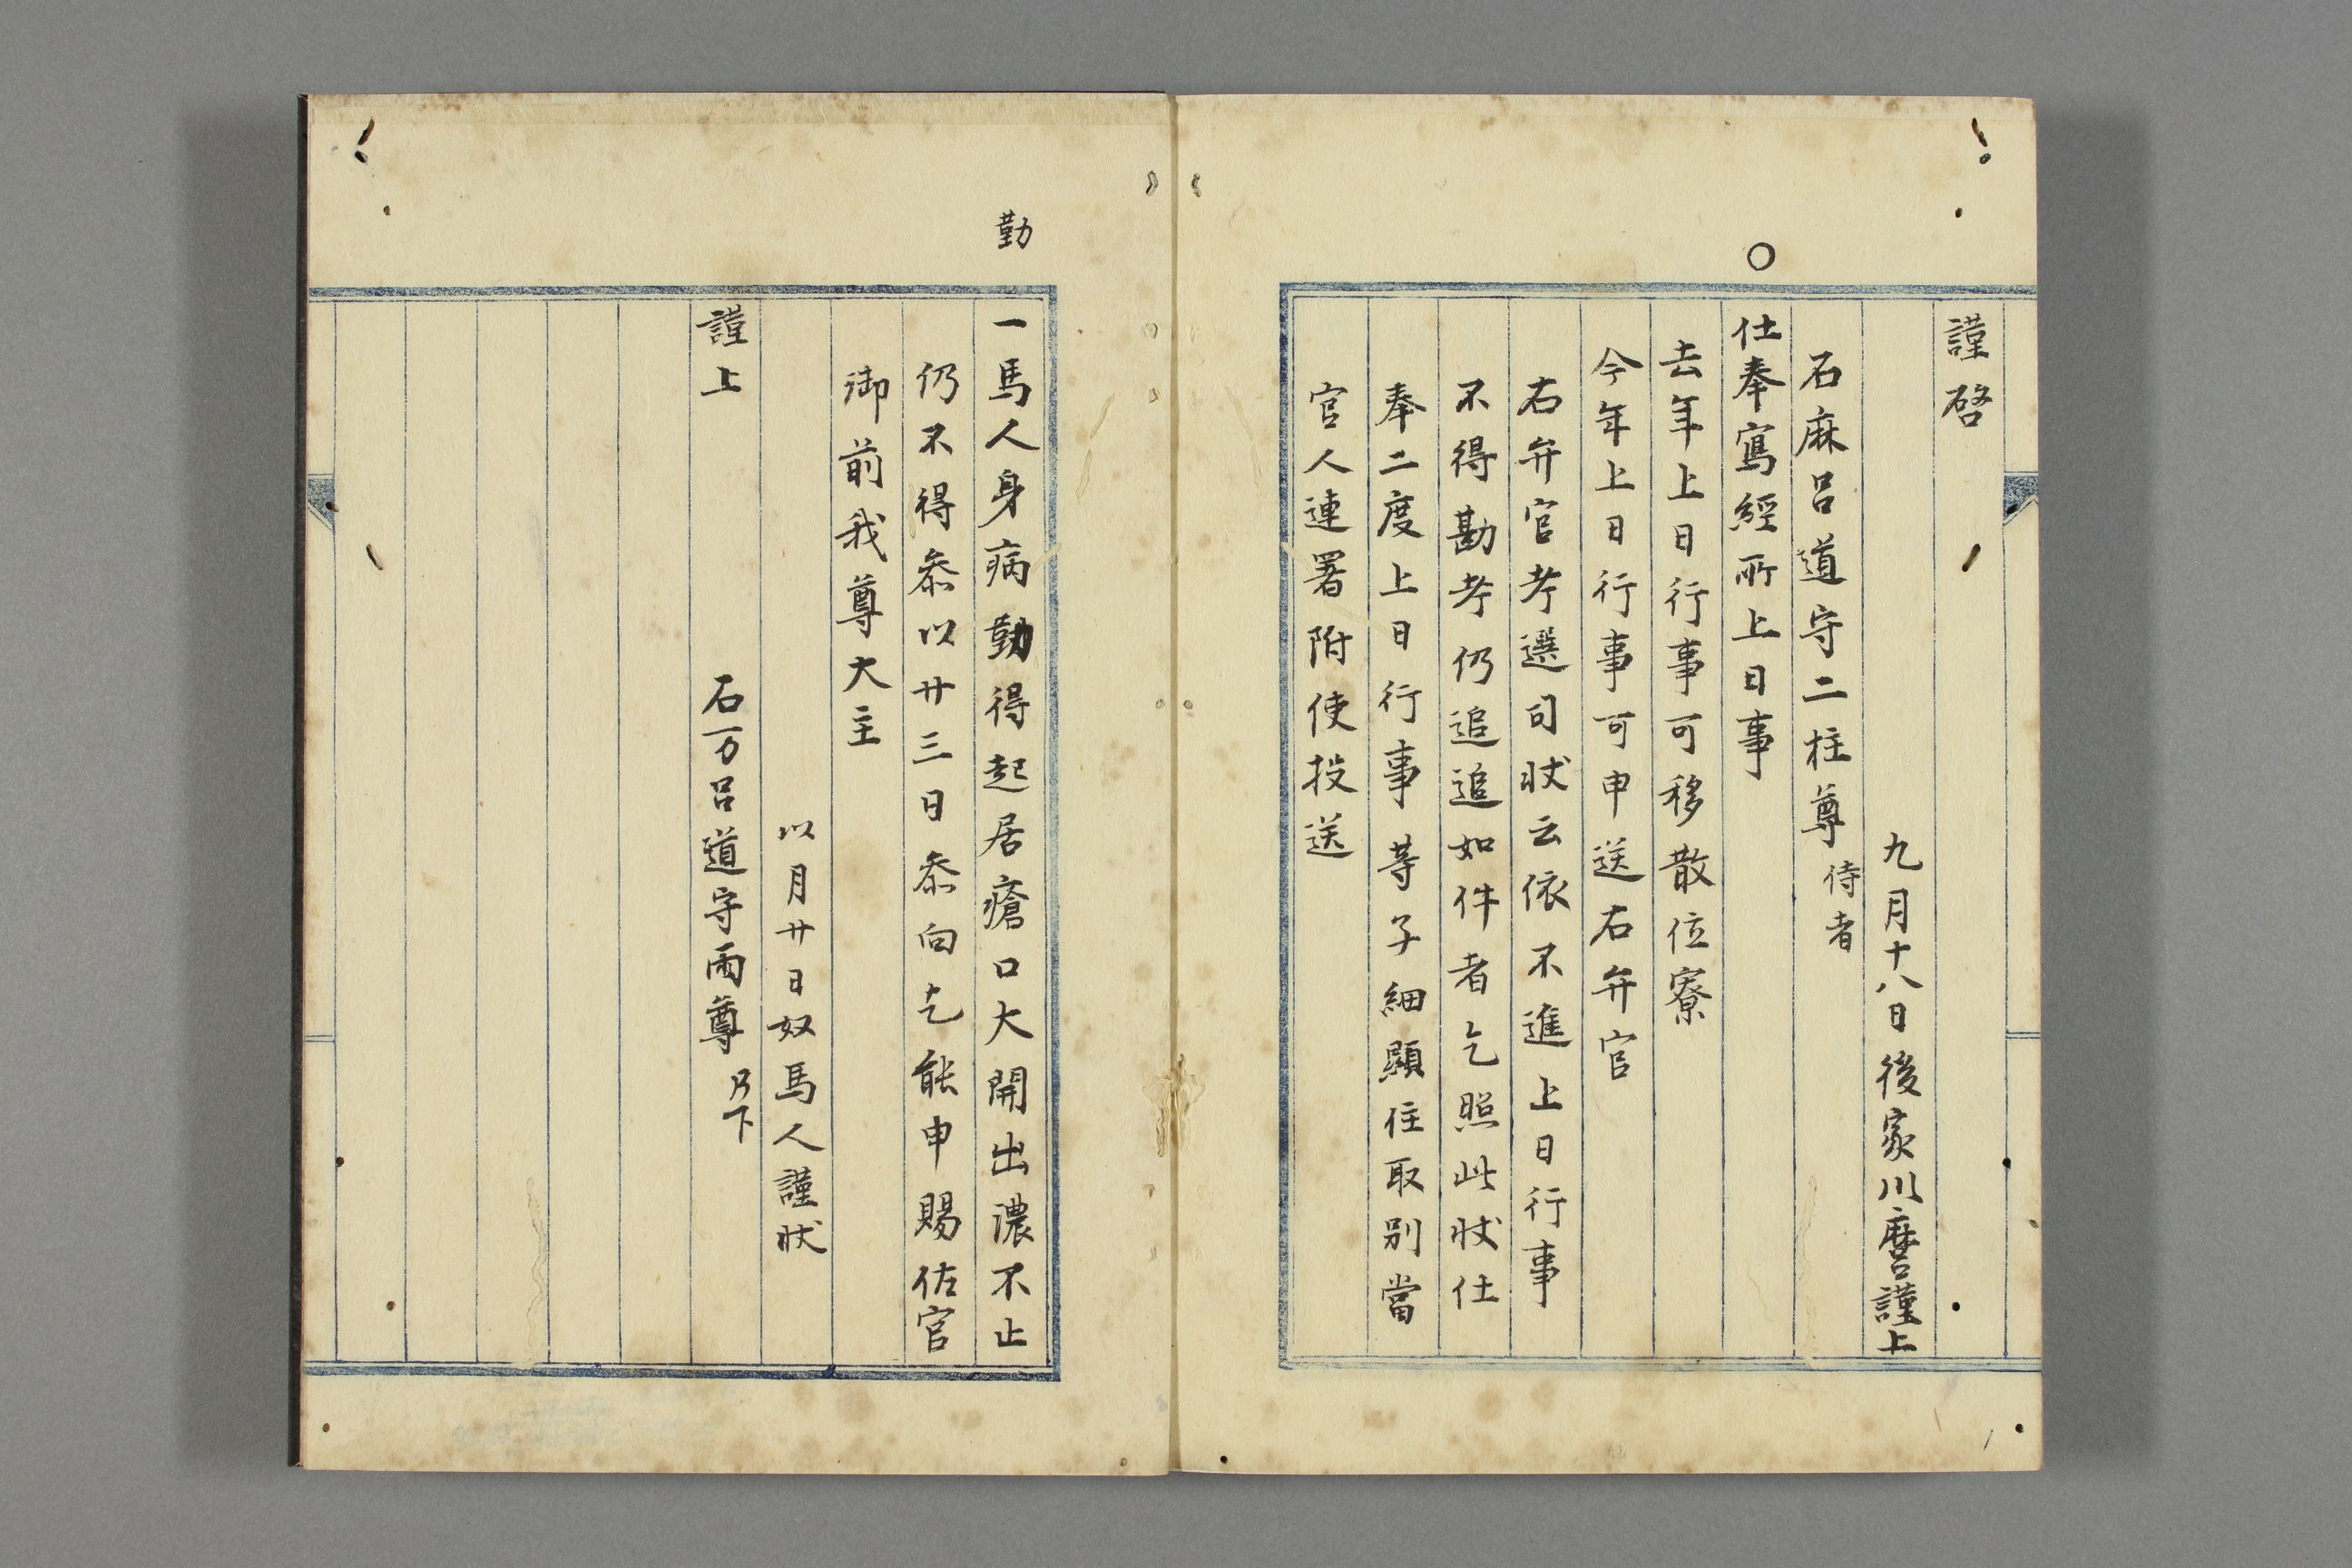 謹啓
九月十八日後家川麿謹上
石麻呂道守二柱尊 侍者
○
仕奉寫經所上日事
去年上日行事可移散位寮
今年上日行事可申送右弁官
右弁官考選司状云依不進上日行事
不得勘考仍追追如件者乞照此状仕
奉二度上日行事等子細顕住取別當
官人連署附使投送
勤
一馬人身病勤得起居瘡口大開出濃不止
仍不得参以廿三日参向乞能申賜佐官
御前我尊大主
以月廿日奴馬人謹状
謹上
石万呂道守両尊